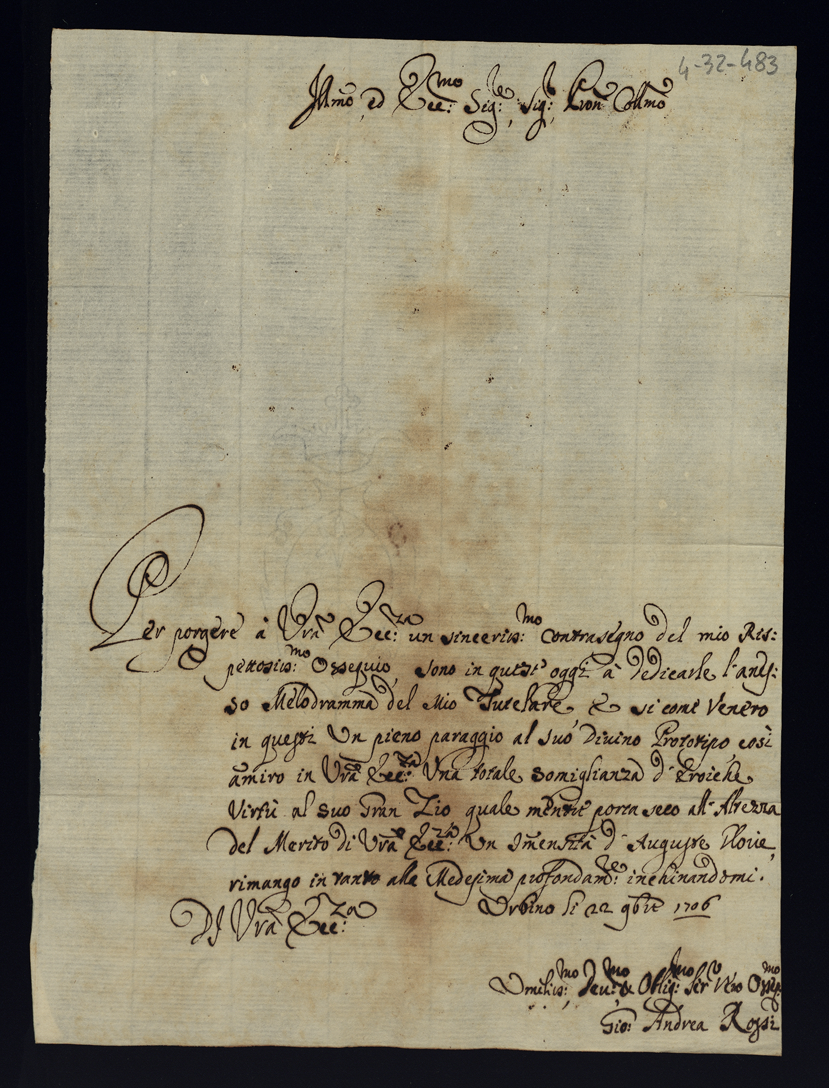 4-32-483
Illmo ed Ecc:mo Sig:re, Sig:r Pron Collmo
Per porgere à Vra Ecc:za un sinceriss:mo contrasegno del mio Ris:
pettosiss:mo Ossequio, sono in quest' oggi à dedicarle l' anes:
so Melodramma del Mio Tutelare, e si come Venero
in questi Un pieno paraggio al suo Divino Prototipo, così
amiro in Vra Ecc:za Una totale somiglianza d' Eroiche
Virtù al suo Gran Zio quale mentre porta seco all' Altezza
del Merito di Vra Ecc:za Un Imensità d' Auguste Glorie,
rimango in tanto alla Medesima profondam:te inchinandomi.
Di Vra Ecc:za
Urbino li 22 9bre 1706
Umiliss:mo Dev:mo & Oblig:mo Ser:r Vero Osseq:mo
Gio: Andrea Rossi